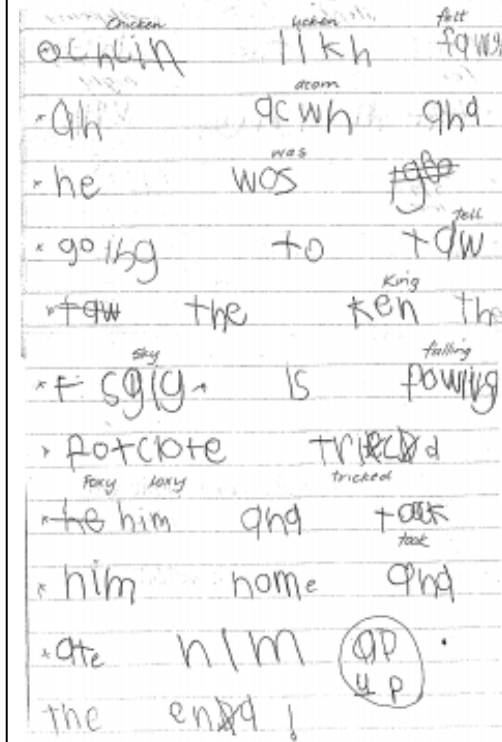 Chicken licken felt
ochcin llkh fawh
acorn
* ah acwh and
was
* he wos
tell
* going to taw
King
* taw the ken the
sky falling
* F sgig is fowing
* fotclote tricd
Foxy loxy tricked
* he him and took
took
* him home and
* ate him ap .
up
the end !